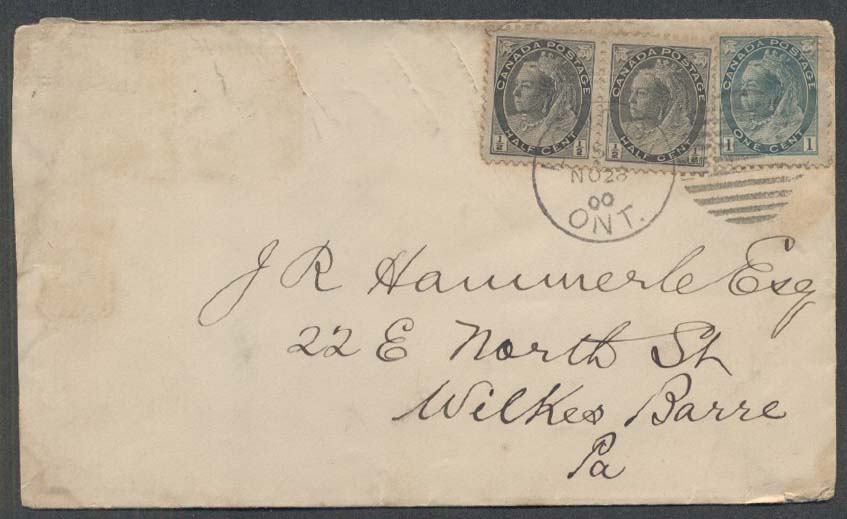 CANADA POSTAGE
HALF CENT
1/2 1/2
CANADA POSTAGE
HALF CENT
1/2 1/2
CANADA POSTAGE
ONE CENT
1 1
NO 28
00
ONT.
J R Hammerle Esq
22 E North St
Wilkes Barre
Pa